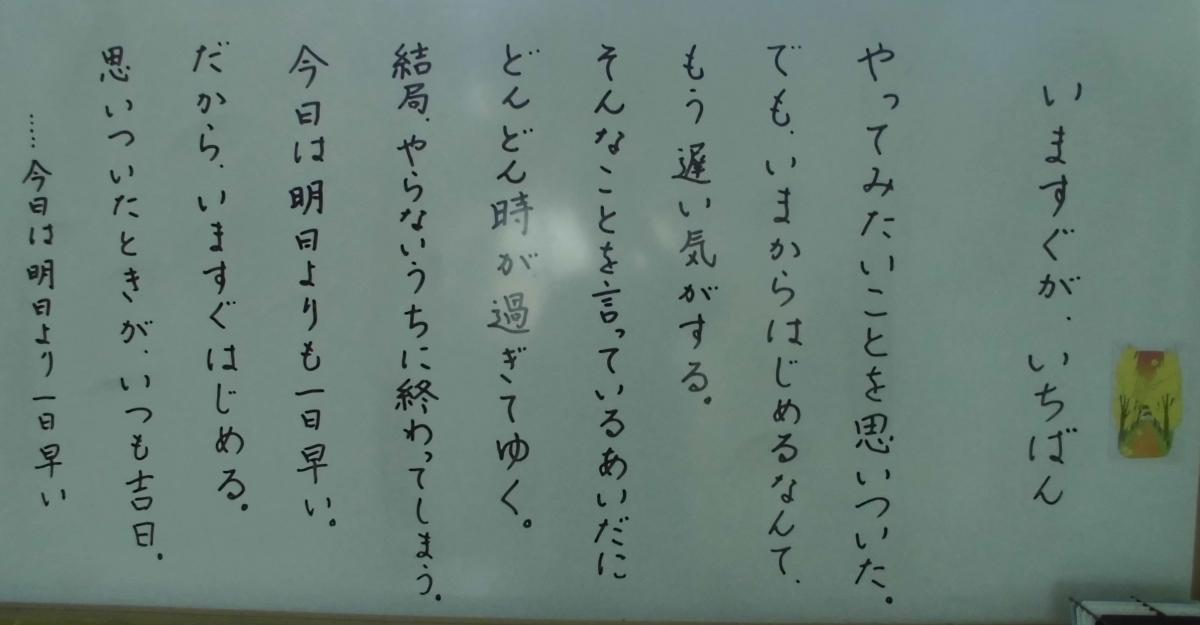 いますぐが、いちばん
やってみたいことを思いついた。
でも、いまからはじめるなんて、
もう遅い気がする。
そんなことを言っているあいだに
どんどん時が過ぎてゆく。
結局、やらないうちに終わってしまう。
今日は明日よりも一日早い。
だから、いますぐはじめる。
思いついたときが、いつも吉日。
……今日は明日より一日早い